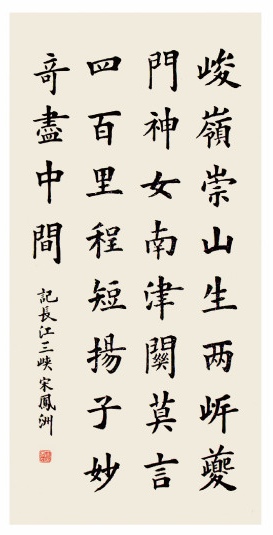 峻嶺崇山生两岍夔
門神女南津關莫言
四百里程短揚子妙
奇盡中間
記長江三峡宋鳳洲